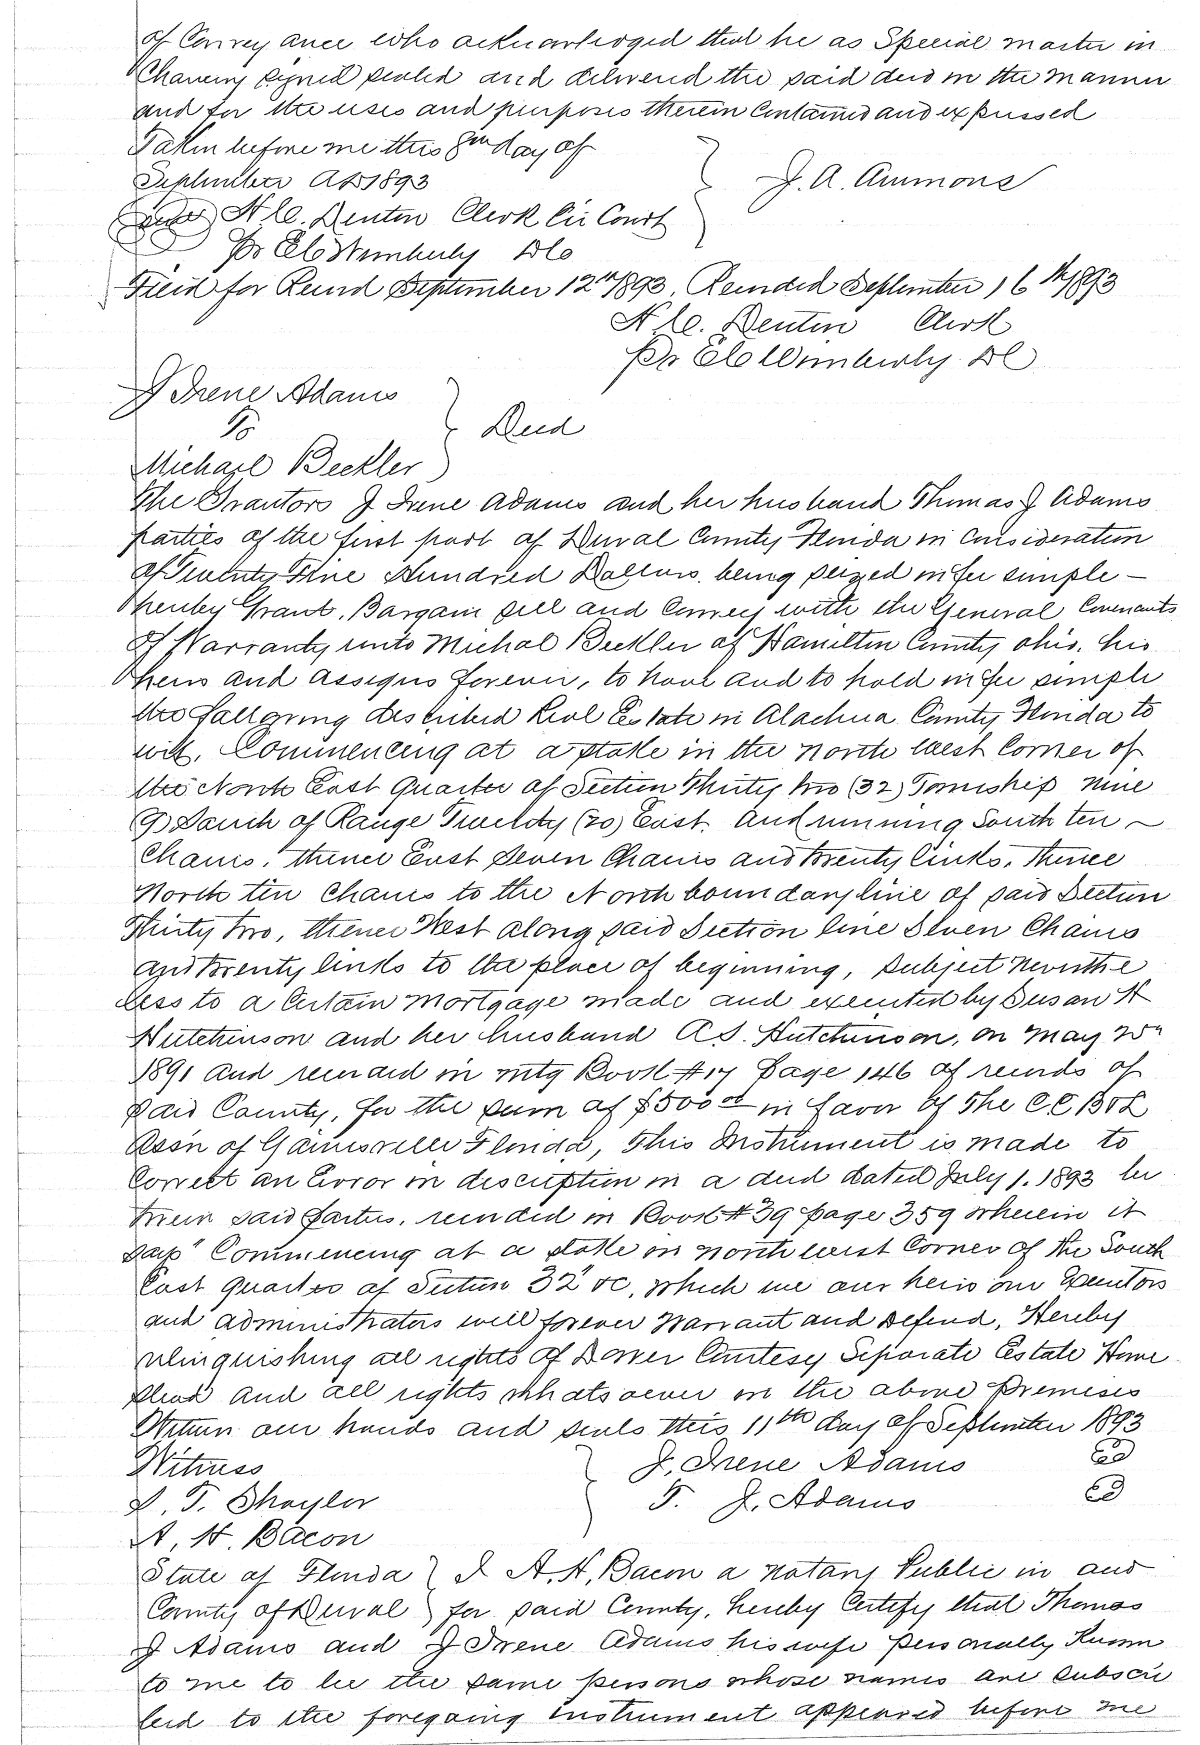 of Conveyance who acknowledged that he as Special master in
Chancery signed sealed and delivered the said deed in the manner
and for the uses and purposes therein Contained and expressed
Taken before me this 8th day of
September AD 1893
J. A. Ammons
N. C. Denton Clerk Cir Court
Pr E C Wimberly D C
Filed for Record September 12th 1893. Recorded September 16th 1893
N. C. Denton Clerk
Pr E C Wimberly D C
J Irene Adams
To
Deed
Michael Beckler
The Grantors J Irene Adams and her husband Thomas J Adams
parties of the first part of Duval County Florida in consideration
of Twenty Five Hundred Dollars. being seized in fee simple —
hereby Grant, Bargain sell and Convey with the General Covenants
of Warranty unto Michal Beckler of Hamilton County ohio, his
heirs and assigns forever, to have and to hold in fee simple
the following described Real Estate in Alachua County Florida to
wit. Commencing at a stake in the north west Corner of
the North East Quarter of Section Thirty two (32) Township nine
(9) South of Range Twenty (20) East. and running South ten ~
Chains. thence East Seven Chains and twenty links. thence
North ten chains to the North boundary line of said Section
Thirty two, thence West along said Section line Seven Chains
and twenty links to the place of beginning, Subject Neverthe
less to a Certain mortgage made and executed by Susan H
Hutchinson and her husband A S. Hutchinson, on may
1891 and record in mtg Book #17 Page 146 of records of
said County, for the sum of $500 00 in favor of The C C B & L
Ass'n of Gainesville Florida, This Instrument is made to
Correct an Error in description in a deed dated July 1. 1893 be
tween said Parties. recorded in Book #39 page 359 wherein it
says "Commencing at a stake in north west Corner of the South
East quarter of Section 32" &c, which we our heirs our Executors
and administrators will forever Warrant and Defend, Hereby
relinquishing all rights of Dower Curtesy Separate Estate Home
stead and all rights whatsoever in the above Premises
Witness our hands and seals this 11th day of September 1893
Witness
J. Irene Adams
T. J. Adams
T. Shaylor
A. H. Bacon
State of Florida } I A. H. Bacon a notary Public in and
County of Duval } for said County, hereby Certify that Thomas
J Adams and J Irene Adams his wife personally Known
to me to be the same persons whose names are subscri
bed to the foregoing Instrument appeared before me